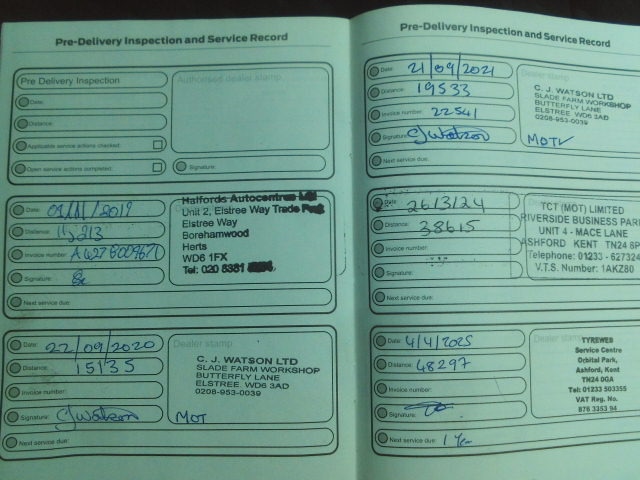 Pre-Delivery Inspection and Service Record
Pre Delivery Inspection
Date:
Distance:
Applicable service actions checked:
Open service actions completed:
Authorised dealer stamp
Signature:
Date: 01/11/2019
Distance: 11,213
Invoice number:
Signature:
Next service due:
Halfords Autocentres
Unit 2, Elstree Way Trade Park
Elstree Way
Borehamwood
Herts
WD6 1FX
Tel: 020 8381
Date: 22/09/2020
Distance: 15135
Invoice number:
Signature: CJWatson
Next service due:
Dealer stamp
C. J. WATSON LTD
SLADE FARM WORKSHOP
BUTTERFLY LANE
ELSTREE. WD6 3AD
0208-953-0039
MOT
Pre-Delivery Inspection and Service Record
Date: 21/09/2021
Distance: 19533
Invoice number: 22541
Signature: CJWatson
Next service due:
Dealer stamp
C. J. WATSON LTD
SLADE FARM WORKSHOP
BUTTERFLY LANE
ELSTREE. WD6 3AD
0208-953-0039
MOT
Date: 26/3/24
Distance: 38615
Invoice number:
Signature:
Next service due:
TCT (MOT) LIMITED
RIVERSIDE BUSINESS PARK
UNIT 4 - MACE LANE
ASHFORD KENT TN24 8P
Telephone: 01233 - 627324
V.T.S. Number: 1AKZ80
Date: 4/4/2025
Distance: 48297
Invoice number:
Signature:
Next service due: 1 Year
Dealer
TYREWEB
Service Centre
Orbital Park,
Ashford, Kent
TN24 0GA
Tel: 01233 503355
VAT Reg. No.
876 3353 94